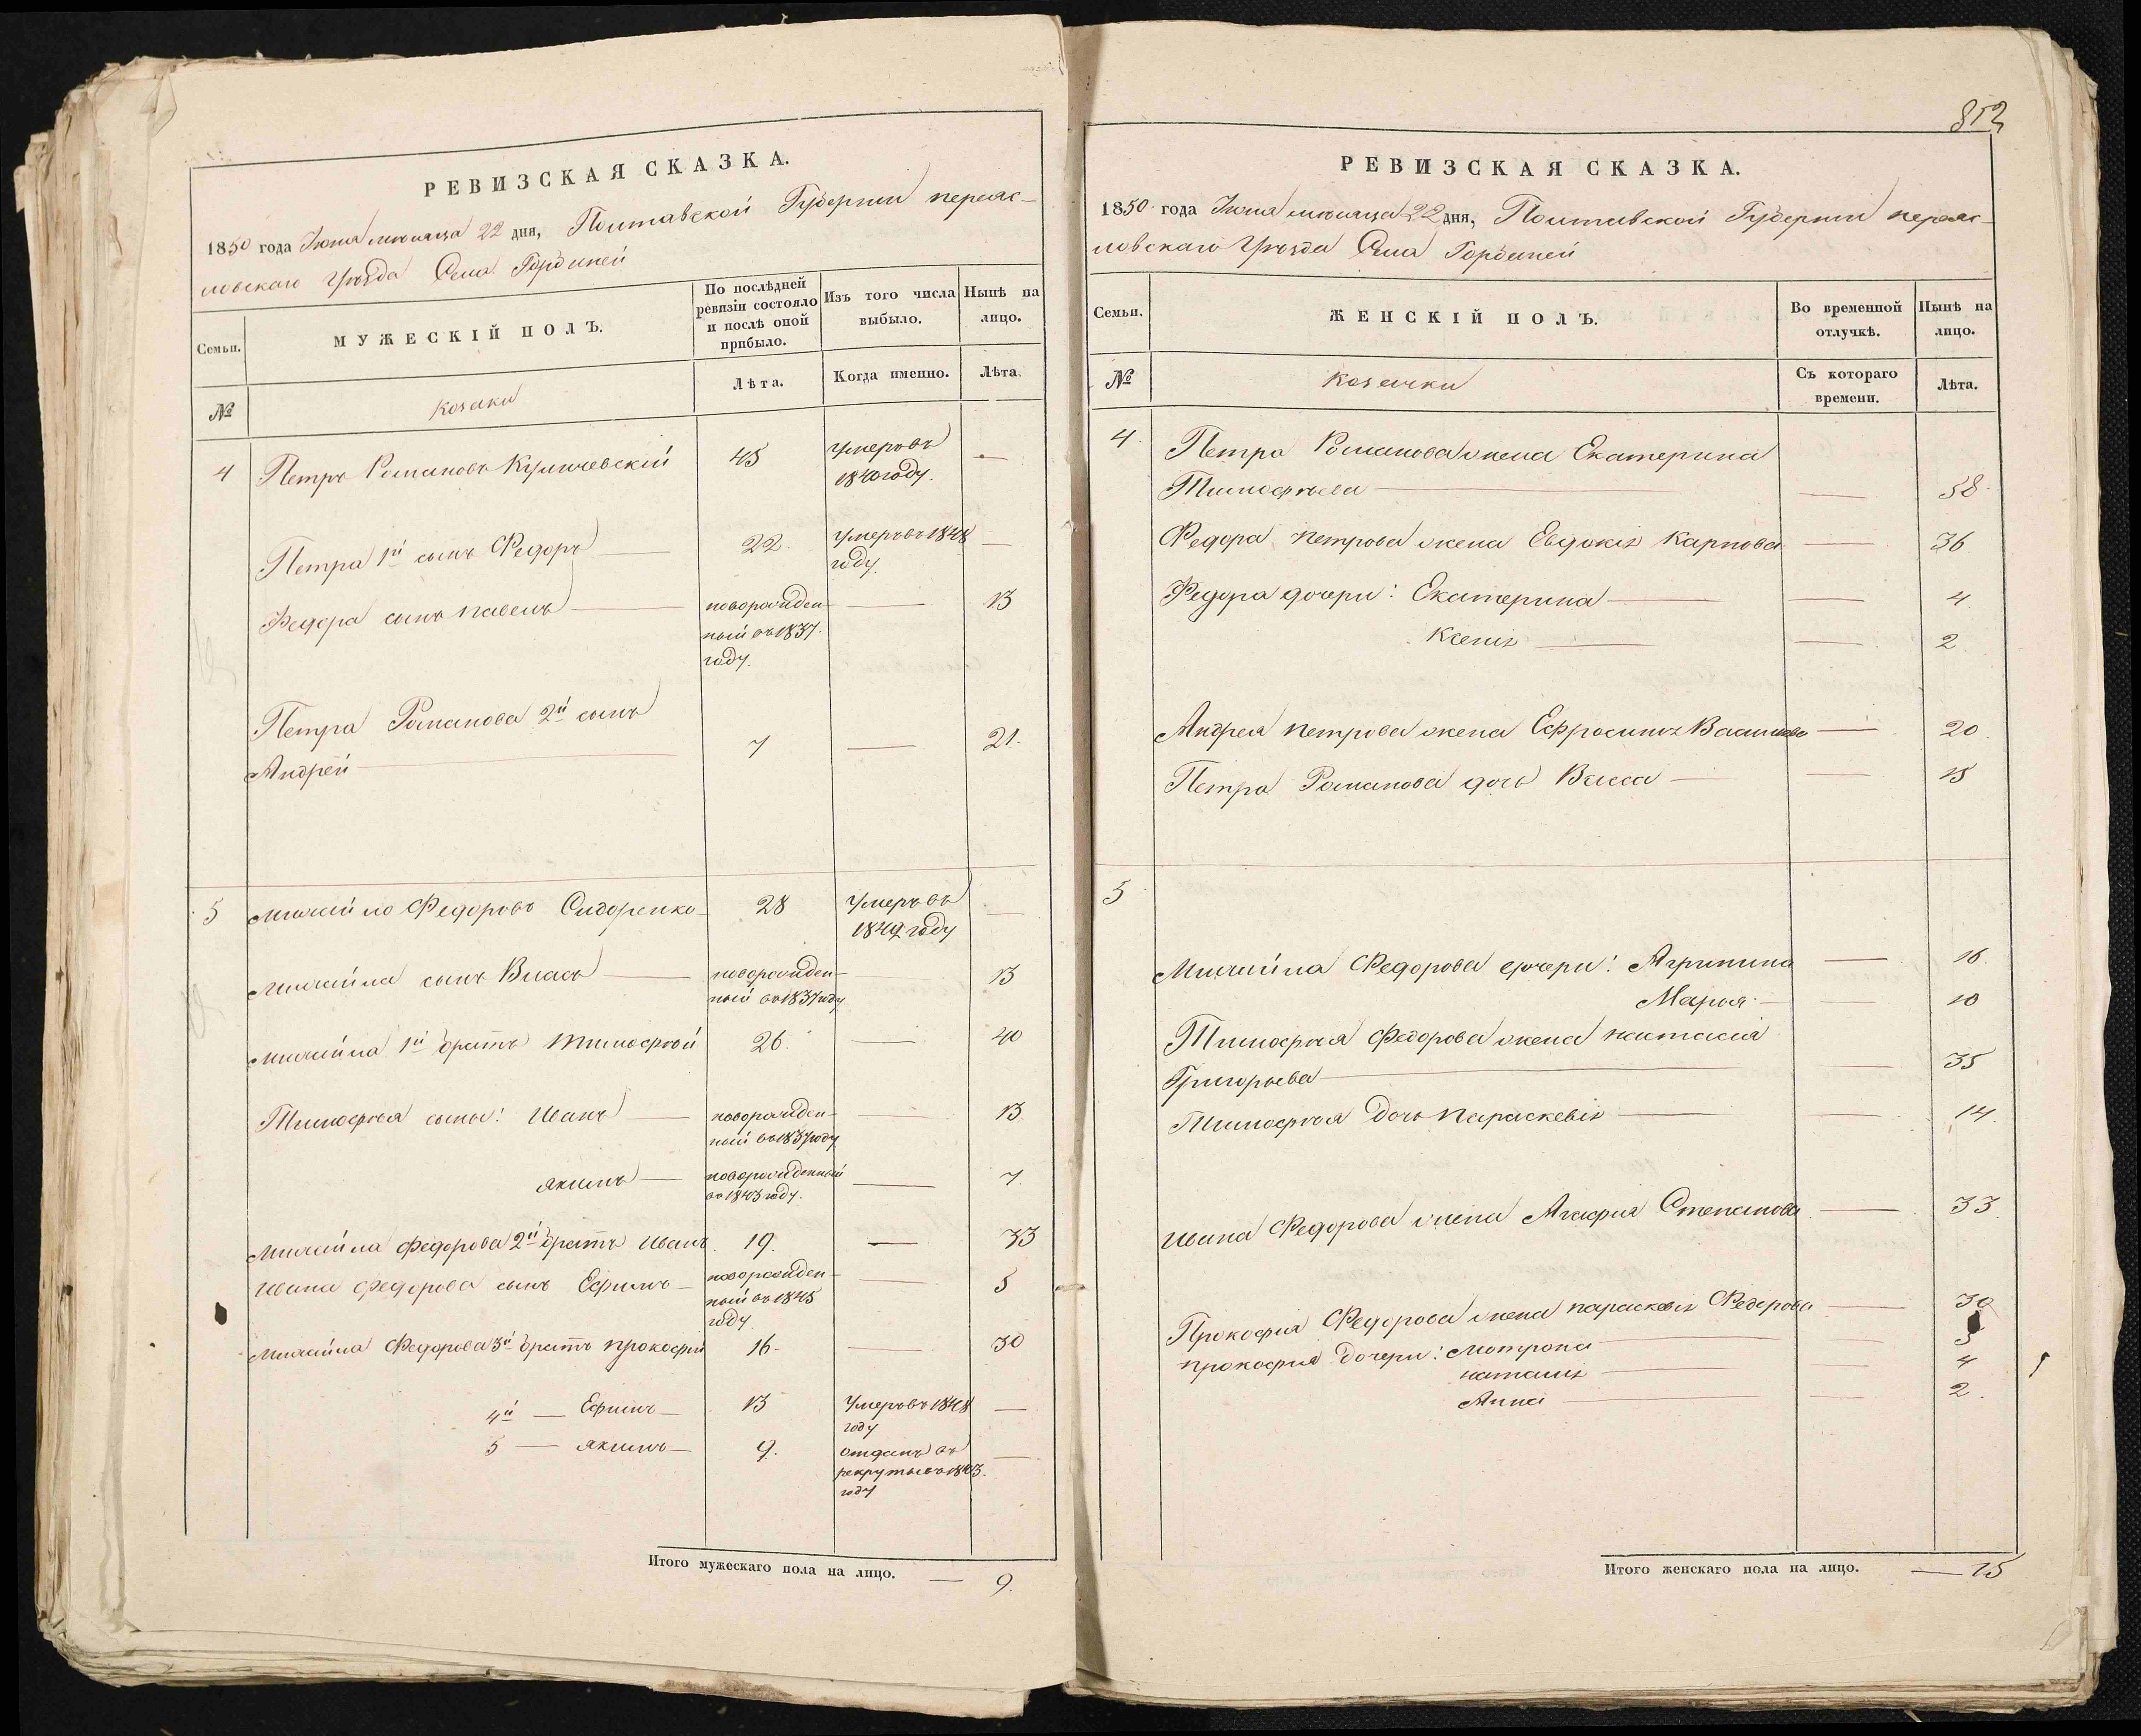 РЕВИЗСКАЯ СКАЗКА.
1850 года Іюня месяца 22 дня, Полтавской Губерніи переяс-
ловскаго Уѣзда Села Гордыней
Семьи.
МУЖЕСКІЙ ПОЛЪ.
По послѣдней
ревизіи состояло
и послѣ оной
прибыло.
Изъ того числа
выбыло.
Нынѣ на
лицо.
№
козаки
Лѣта.
Когда именно.
Лѣта.
4 Петръ Романовъ Куличевскій 45 умеръ въ —
1840 году.
Петра 1й сынъ Федоръ — 22. умеръ въ 1848 —
году.
Федора сынъ павелъ — новорожден- — 13
ный въ 1837.
году.
Петра Романова 2й сынъ
Андрей — 7 — 21.
5 михайло Федоровъ Сидоренко 28 умеръ въ —
1849 году
михайла сынъ Власъ — новорожден- 13
ный въ 1837 году
михайла 1й братъ тимофѣй 26. — 40
Тимофѣя сыны: иванъ — новорожден- — 13
ный въ 1837 году
якимъ — новорожденный — 7.
въ 1843 году.
михайла федорова 2й братъ иванъ 19. — 33
ивана федорова сынъ Ефимъ — новорожден- — 5
ный въ 1845
году
михайла Федорова 3й братъ прокофій 16 — 30
4й — Ефимъ — 13 умеръ въ 1848 —
году
5 — якимъ — 9. отданъ въ —
рекруты въ 1843.
году
Итого мужескаго пола на лицо. — 9.
852
РЕВИЗСКАЯ СКАЗКА.
1850 года Іюня месяца 22 дня, Полтавской Губерніи переяс-
ловскаго Уѣзда Села Гордыней
Семьи.
ЖЕНСКІЙ ПОЛЪ.
Во временной
отлучкѣ.
Нынѣ на
лицо.
№
козачки
Съ котораго
времени.
Лѣта.
4. Петра Романова жена Екатерина
Тимофѣева — — 58.
Федора петрова жена Евдокія карпова — 36.
Федора дочери: Екатерина — — 4.
Ксенія — — 2.
Андрея петрова жена Ефросинія Василева — 20.
Петра Романова дочь Васса — — 15
5
Михайла Федорова дочери: Агрипина — 16.
Марья — — 10
Тимофѣя Федорова жена настасія
Григорьева — — 35
Тимофѣя дочь параскевія — — 14.
ивана Федорова жена Агафія Степанова — 33
Прокофія Федорова жена параскевія Федорова — 30
прокофія дочери: мотрона — 5
наталія — 4
Анна — — 2.
Итого женскаго пола на лицо. — 15